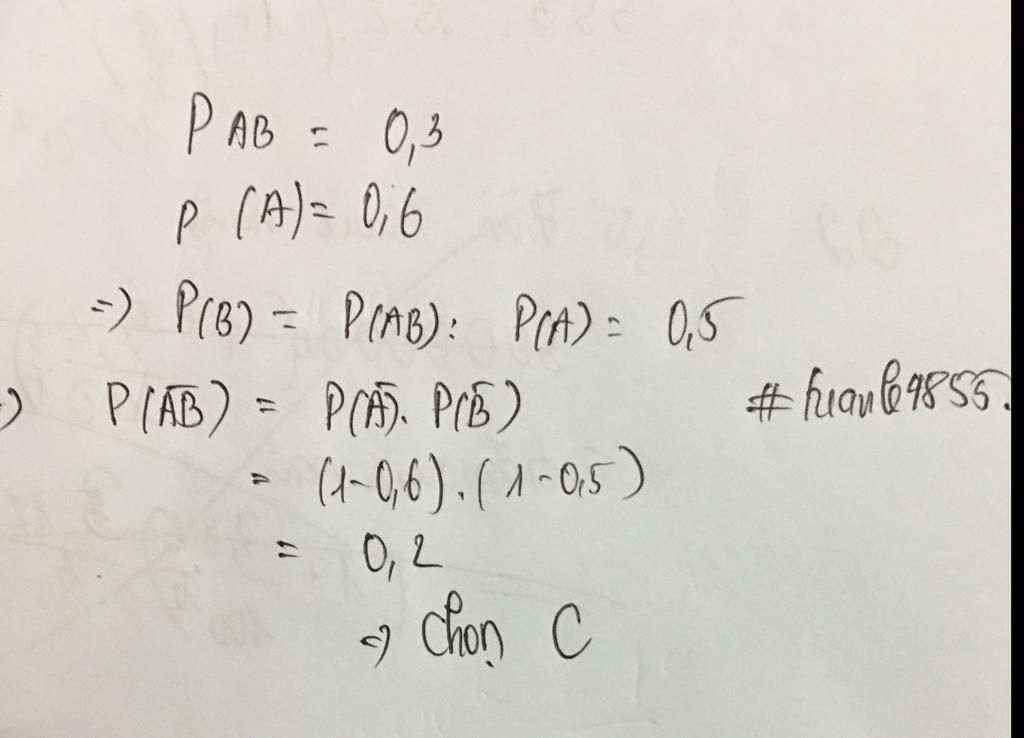 P AB = 0,3
P (A) = 0,6
=) P(B) = P(AB) : P(A) = 0,5
=) P(A̅B̅) = P(A̅). P(B̅)
= (1-0,6).(1-0,5)
= 0,2
=) Chọn C